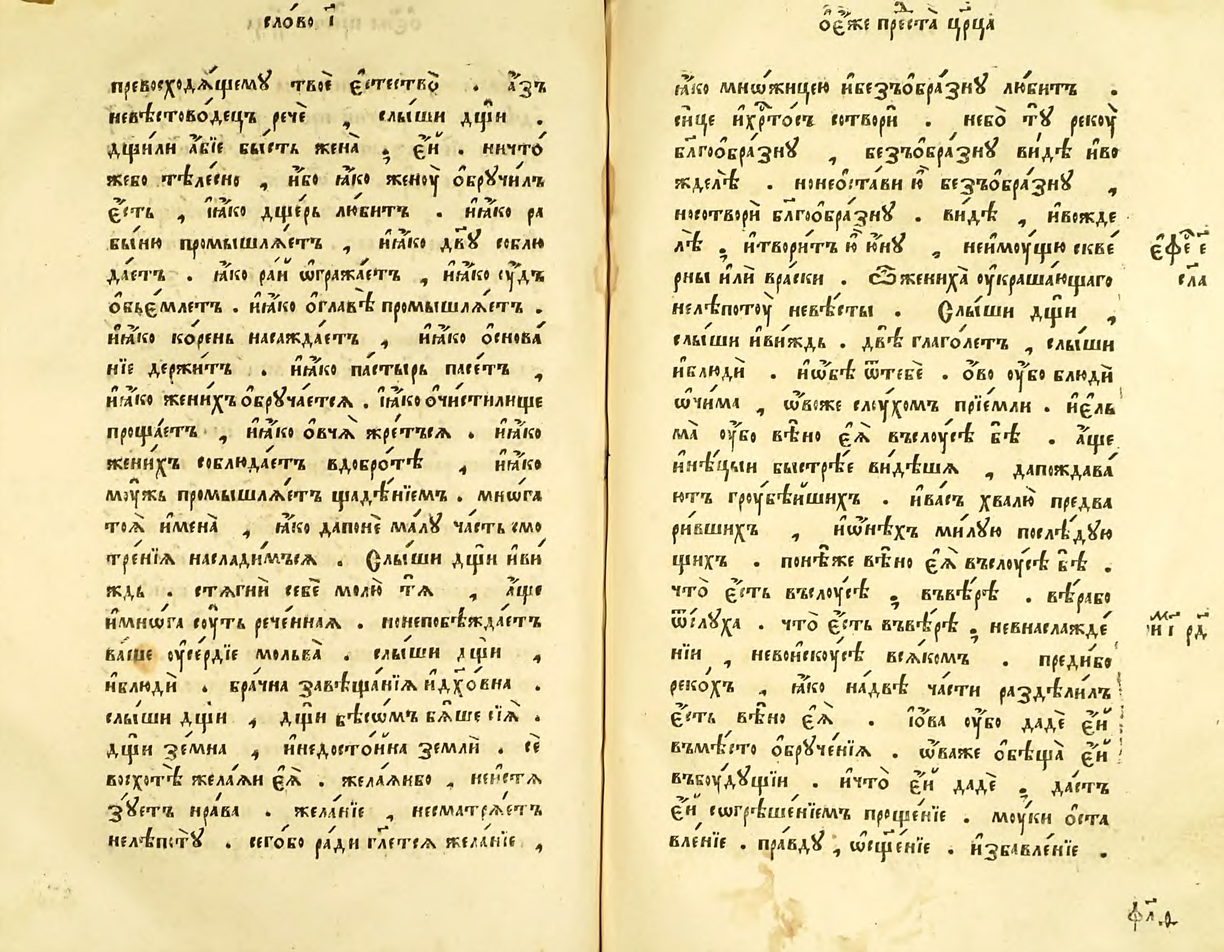 сло́во і҃
превосходѧ́щемꙋ твоѐ є҆стество̀ . а҆́зъ
невѣстово́децъ речѐ , слы́ши дщѝ .
дщи́ли а҆́бїе бы́сть жена̀ ; є҆́й . ничто́
жебо тѣле́сно , и҆́бо ꙗ҆́ко женоу̀ ѡ҆брꙋчи́лъ
є҆́сть , і҆ꙗ҆́ко дще́рь лю́битъ . и҆ꙗ҆́ко ра
бы́ню промышлѧ́етъ , и҆ꙗ҆́ко дв҃ꙋ соблю
да́етъ . ꙗ҆́ко ра́й ѡ҆гража́етъ , и҆ꙗ҆́ко сꙋ́дъ
ѡ҆бъе́млетъ . и҆ꙗ҆́ко ѡ҆главѣ̀ промышлѧ́етъ .
и҆ꙗ҆́ко ко́рень насажда́етъ , и҆ꙗ҆́ко ѻ҆снова́
нїе держи́тъ . и҆ꙗ҆́ко па́стырь пасе́тъ ,
и҆ꙗ҆́ко жени́хъ ѻ҆брꙋча́етсѧ . і҆ꙗ҆́ко ѻ҆чисти́лище
проща́етъ , и҆ꙗ҆́ко ѻ҆вчѧ̀ жре́тъсѧ . и҆ꙗ҆́ко
жени́хъ соблюда́етъ вдобро́тѣ , и҆ꙗ҆́ко
моу́жь промышлѧ́етъ щадѣ́нїемъ . мнѡ́га
тоѧ̀ и҆мена̀ , ꙗ҆́ко дапонѐ ма́лꙋ ча́сть смо
тре́нїѧ наслади́мъсѧ . Слы́ши дщѝ и҆ви́
ждь . стѧгнѝ себѐ молю̀ тѧ̀ , а҆́ще
и҆мнѡ́га соу́ть рече́ннаѧ . нонепобѣжда́етъ
ва́ше оу҆се́рдїе мольва̀ . слы́ши дщѝ ,
и҆блюдѝ . бра́чна завѣща́нїѧ и҆дх҃о́вна .
слы́ши дщѝ , дщѝ бѣсѡ́мъ бѧ́ше сїѧ̀ .
дщѝ зе́мна , и҆недосто́йна землѝ . сѐ
восхотѣ̀ жела́ѧи є҆ѧ̀ . жела́ѧиво , неистѧ
зꙋ́етъ нра́ва . жела́нїе , несматрѧ́етъ
нелѣпотꙋ̀ . сего́бо ра́ди гл҃етсѧ жела́нїе ,
ѡ҆е҆́же прест҃а цр҃ца
ꙗ҆́ко мнѡ́жицею и҆безъѻбра́знꙋ лю́битъ .
си́це и҆хр҃то́съ сотворѝ . не́бо тꙋ̀ рекоу̀
бл҃гоѻбра́знꙋ , безъѻбра́знꙋ ви́дѣ и҆во
ждел̀ѣ . нонеѻ҆ста́ви ю҆̀ безъѻбра́знꙋ ,
носотворѝ бл҃гоѻбра́знꙋ . ви́дѣ , и҆вожде
лѣ̀ ; и҆твори́тъ ю҆̀ ю҆́нꙋ , неи҆мо́ущю скве́
рны и҆лѝ вра́ски . Ѽжениха̀ оу҆краша́ющаго
нелѣпотоу̀ невѣ́сты . Слы́ши дщѝ ,
слы́ши и҆ви́ждь . двѣ̀ глаго́летъ , слы́ши
и҆блюдѝ . и҆ѻ҆бѣ̀ ѿтебѐ . ѻ҆́во оу҆́бо блюдѝ
ѻ҆чи́ма , ѻ҆́воже слоу́хомъ прїе́мли . и҆є҆ль
ма̀ оу҆́бо вѣ́но є҆ѧ̀ въслоу́сѣ бѣ̀ . а҆́ще
и҆нѣ́цыи быстрѣ́е ви́дѣша , дапождава́
ютъ гроубѣ́йшихъ . и҆ва́съ хвалю̀ предва
ри́вшихъ , и҆ѻ҆нѣ́хъ ми́лꙋю послѣ́дꙋю
щихъ . поне́же вѣ́но є҆ѧ̀ въслоу́сѣ бѣ̀ .
что̀ є҆́сть въслоу́сѣ ; въвѣ́рѣ . вѣ́рабо
ѿслꙋ́ха . что̀ є҆́сть въвѣ́рѣ ; невнаслажде́
нїи , невои́скоусѣ всѧ́комъ . преди́бо
реко́хъ , ꙗ҆́ко на́двѣ ча́сти раздѣли́лъ
є҆́сть вѣ́но є҆ѧ̀ . і҆ѻ҆́ва оу҆́бо дадѐ є҆́й
въмѣ́сто ѻ҆брꙋче́нїѧ . ѻ҆́важе ѻ҆бѣща̀ є҆́й
въбоу́дꙋщїи . и҆что̀ є҆́й дадѐ ; да́стъ
є҆́й согрѣше́нїемъ проще́нїе . моу́ки ѻ҆ста
вле́нїе . пра́вдꙋ , ѻ҆сщ҃е́нїе . и҆збавле́нїе .